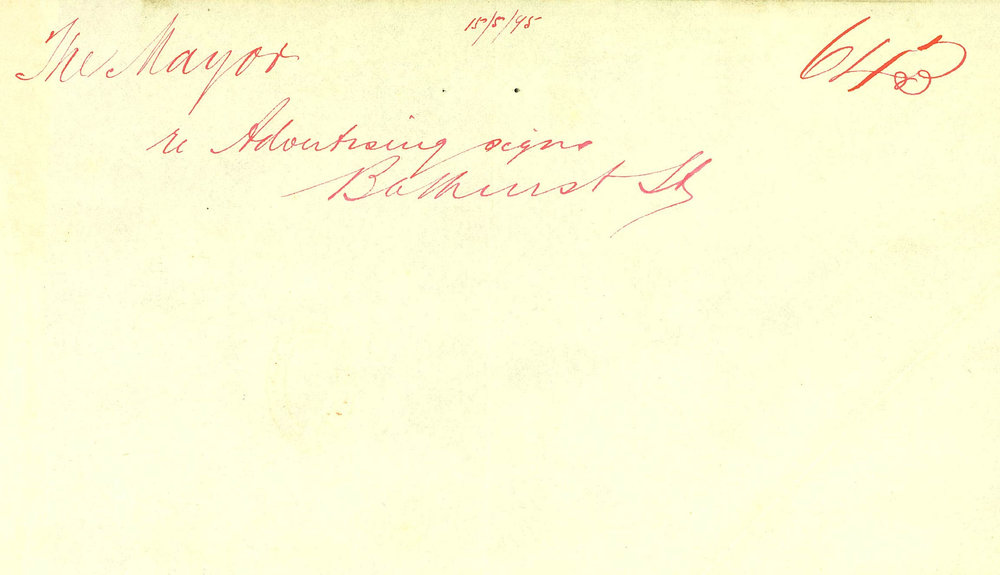 15/5/95
The Mayor
re Advertising signs
Bathurst St